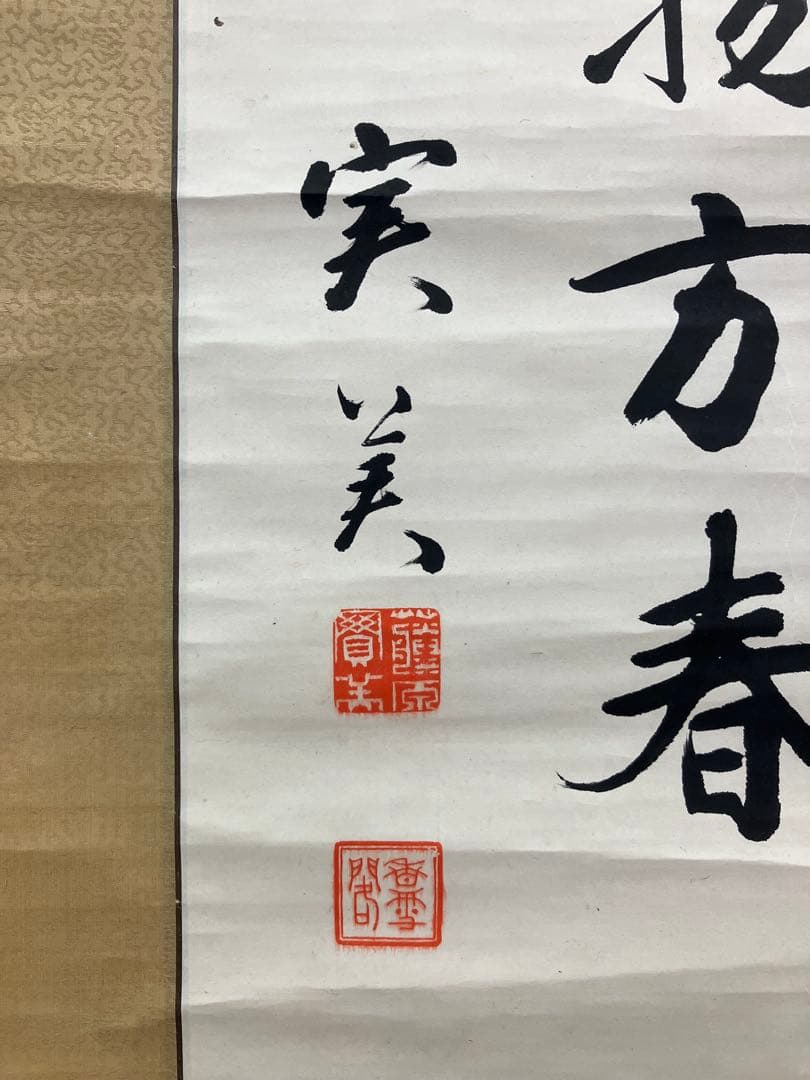 方春
実美
藤原
實美